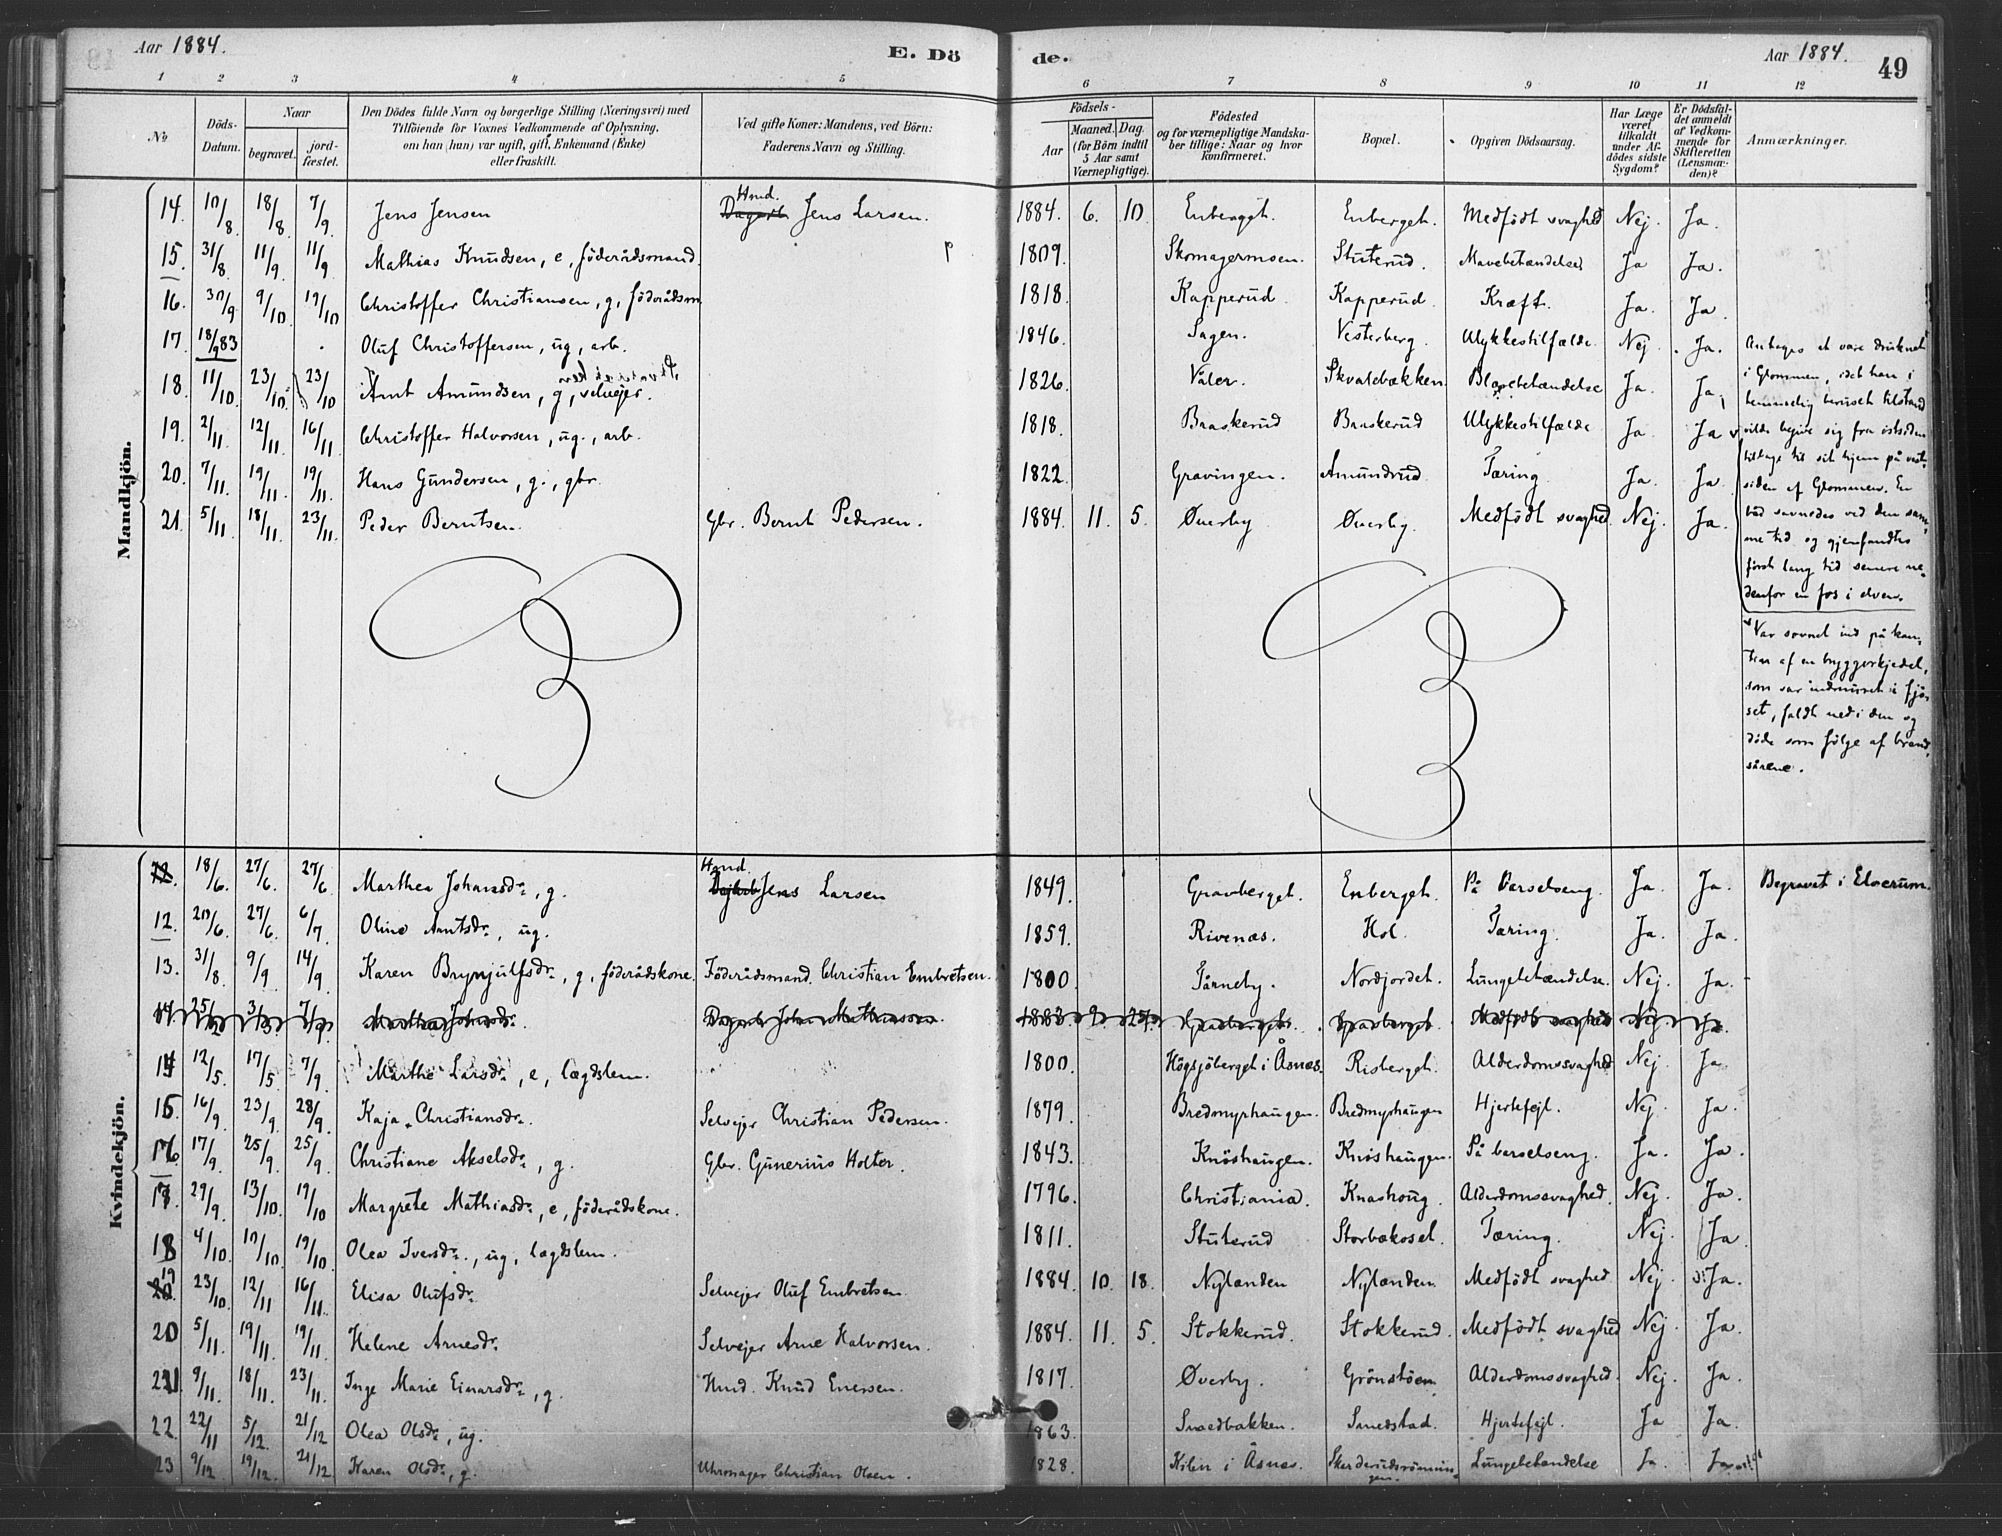 Aar 1884. E. Dö de. Aar 1884. 49
1 2 3 4 5 6 7 8 9 10 11 12
No. Döds-Datum. Naar begravet. jord-fæstet. Den Dödes fulde Navn og borgerlige Stilling (Næringsvei) med Tilföiende for Voxnes Vedkommende af Oplysning, om han (hun) var ugift, gift, Enkemand (Enke) eller fraskilt. Ved gifte Koner: Mandens, ved Börn: Faderens Navn og Stilling. Födsels- Aar Maaned. Dag. (for Börn indtil 5 Aar samt Værnepligtige). Födested og for værnepligtige Mandska-ber tillige: Naar og hvor konfirmeret. Bopæl. Opgiven Dödsaarsag. Har Læge været tilkaldt under Af-dödes sidste Sygdom? Er Dödsfal-det anmeldt af Vedkom-mende for Skifteretten (Lensman-den)? Anmærkninger.
Mandkjön.
14. 10/8 18/8 7/9 Jens Jensen Hmd. Jens Larsen. 1884. 6. 10. Enberget. Enberget. Medfödt svaghed Nej. Ja.
15. 31/8 11/9 11/9 Mathias Knudsen, e, föderådsmand 1809. Skomagermoen. Stuterud. Mavebetændelse Ja Ja.
16. 30/9 9/10 19/10 Christoffer Christiansen, g, föderådsm 1818. Kapperud Kapperud. Kræft. Ja. Ja.
17. 18/9 83 Oluf Christoffersen, ug, arb. 1846. Sagen. Vesterberg. Ulykkestilfælde Nej. Ja.
18. 11/10 23/10 23/10 Arnt Amundsen, g, selvejer. 1826. Våler. Skvaldbækken Blærebetændelse Ja. Ja,
19. 2/11 12/11 16/11 Christoffer Halvorsen, ug., arb. 1818. Braskerud Braskerud Ulykkestilfælde Ja. Ja
20. 7/11 19/11 19/11 Hans Gundersen, g., gbr. 1822. Gravingen. Amundrud Tæring Ja. Ja.
21. 5/11 18/11 23/11 Peder Berntsen. Gbr. Bernt Pedersen. 1884. 11. 5. Øverby Øverby. Medfödt svaghed. Nej. Ja.
Antages at være druknet
i Glommen, idet han i
temmelig beruset tilstand
vilde begive sig fra østsiden
tilbage til sit hjem på vest-
siden af Glommen. En
båd savnedes ved den sam-
me tid og gjenfandtes
först lang tid senere ne-
denfor en fos i elven.
Var sovnet ind på kan-
ten af en bryggerkjedel,
som var indmuret i fjö-
set, faldt ned i den og
döde som fölge af brand-
sårene.
Kvindekjön.
18/6. 27/6. 27/6. Marthea Johansdr., g. Hmd. Jens Larsen 1849. Gravberget. Enberget. På Barselseng. Ja. Ja. Begravet i Elverum.
12. 20/6. 27/6. 6/7 Oline Arntsdr., ug. 1859. Rivenæs. Hol. Tæring. Ja. Ja.
13. 31/8 9/9 14/9 Karen Brynjulfsdr., g, föderådskone. Föderådsmand Christian Embretsen. 1800. Tårneby. Nordjordet. Lungebetændelse. Nej. Ja.
14. Martha Johnsdr. Dagarb. John Mathiassen. 1883 Gravberget. Gravberget. Medfödt svaghed Nej. Ja.
14 12/5. 17/5. 7/9 Marthe Larsdr., e, lægdslem. 1800. Högsjöberget i Åsnæs. Risberget. Alderdomssvaghed Nej. Ja
15. 16/9. 23/9 28/9 Kaja Christiansdr. Selvejer Christian Pedersen. 1879. Bredmyrhaugen. Bredmyrhaugen Hjertefejl. Nej. Ja.
16. 17/9. 25/9. 25/9 Christiane Akselsdr., g. Gbr. Gunerius Holter. 1843. Knöshaugen. Knöshaugen. På barselseng. Ja. Ja.
17. 29/9. 13/10. 19/10 Margrete Mathiasdr., e, föderådskone. 1796. Christiania. Knashoug. Alderdomssvaghed. Nej. Ja.
18 4/10. 10/10. 19/10 Olea Iversdr., ug, lægdslem. 1811. Stuterud Storbækosel. Tæring. Nej. Ja
19 23/10. 12/11 16/11. Elisa Olufsdr. Selvejer Oluf Embretsen. 1884. 10. 18. Nylænden Nylænden. Medfödt svaghed. Nej. Ja.
20 5/11 19/11 19/11. Helene Arnesdr. Selvejer Arne Halvorsen. 1884. 11. 5. Stokkerud. Stokkerud. Medfödt svaghed Nej. Ja.
21. 9/11. 18/11. 23/11. Inge Marie Einarsdr., g. Hmd. Knud Enersen. 1817. Øverby. Grönstöen. Alderdomssvaghed. Nej. Ja.
22. 22/11 5/12. 21/12 Olea Olsdr., ug. 1863. Snædbakken. Smedstad. Hjertefejl. Ja Ja.
23 9/12 19/12. 21/12 Karen Olsdr., g. Uhrmager Christian Olsen. 1828. Kilen i Åsnæs. Lungebetændelse Ja. Ja